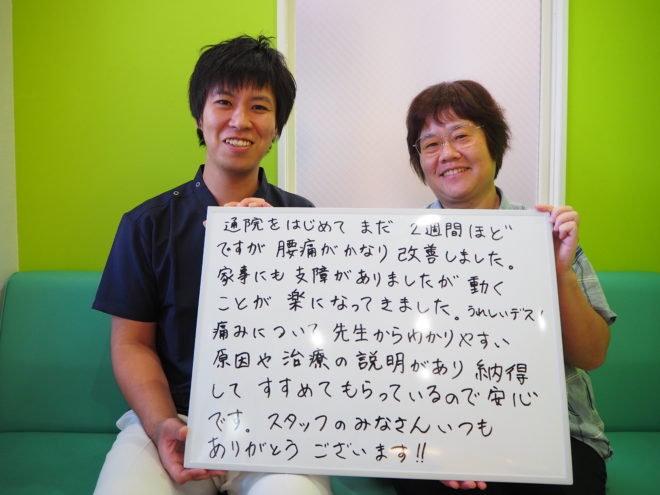 通院をはじめて まだ 2週間ほど
ですが 腰痛がかなり 改善しました。
家事にも 支障がありましたが 動く
ことが 楽になってきました。うれしいデス!
痛みについて 先生からわかりやすい
原因や 治療の 説明があり 納得
して すすめて もらっているので 安心
です。スタッフの みなさん いつも
ありがとう ございます!!